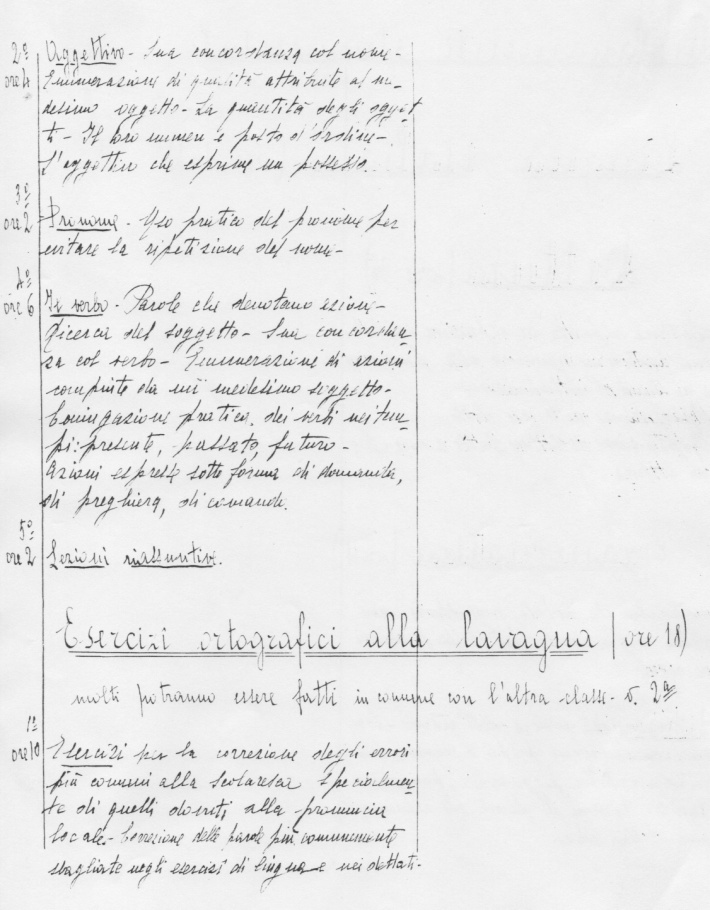 2º Aggettivo - Sua concordanza col nome -
ore 4 Enumerazione di qualità attribuite al me-
desimo oggetto - La quantità degli ogget
ti - Il loro numero e posto d'ordine -
L'aggettivo che esprime un possesso
3º
ore 2 Pronome - Uso pratico del pronome per
evitare la ripetizione del nome -
4º
ore 6 Il verbo - Parole che denotano azione -
Ricerca del soggetto - Sua concordan
za col verbo - Enumerazione di azioni
compiute da un medesimo soggetto -
Coniugazione pratica dei verbi nei tem
pi: presente, passato, futuro -
Azioni espresse sotto forma di domanda,
di preghiera, di comando.
5º
ore 2 Lezioni riassuntive.
Esercizi ortografici alla lavagna (ore 18)
molti potranno essere fatti in comune con l'altra classe - 2ª
1º
ore 10 Esercizi per la correzione degli errori
più comuni alla scolaresca specialmen
te di quelli dovuti alla pronuncia
locale - Correzione delle parole più comunemente
sbagliate negli esercizi di lingua e nei dettati -